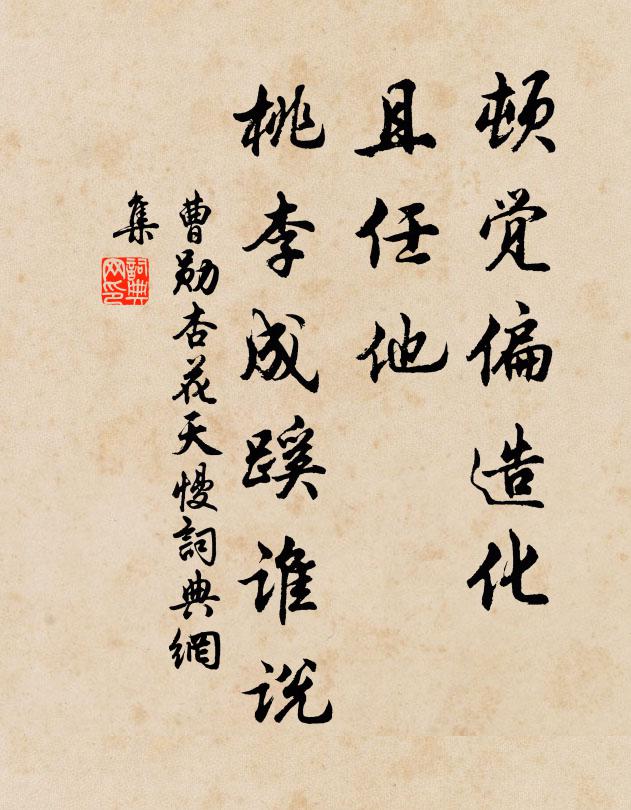 顿觉偏造化
且任他
桃李成蹊谁说
曹勋杏花天慢詞典網
集
詞典
网印